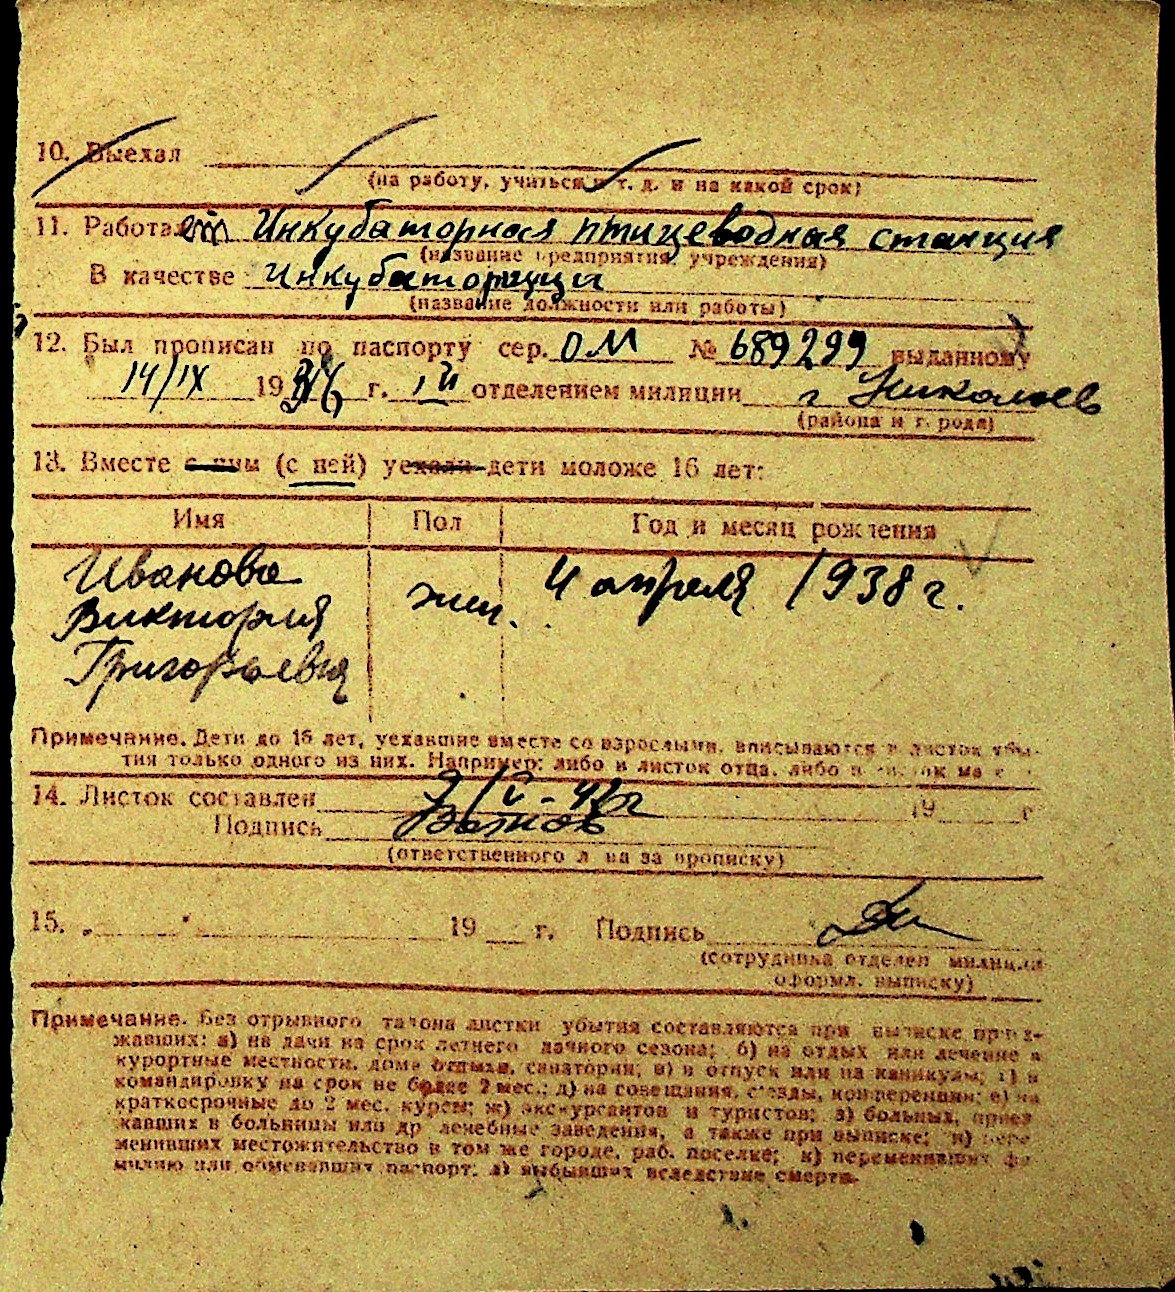 10. Выехал
(на работу, учиться и т. д. и на какой срок)
11. Работает Инкубаторная птицеводная станция
(название предприятия, учреждения)
В качестве Инкубаторщицы
(название должности или работы)
12. Был прописан по паспорту сер. ОМ № 689299 выданному
14/IX 19 г. 1й отделением милиции г Николаев
(района и города)
13. Вместе с ним (с ней) уехали дети моложе 16 лет:
Имя Пол Год и месяц рождения
Иванова жен. 4 апреля 1938 г.
Виктория
Григорьевна
Примечание. Дети до 16 лет, уехавшие вместе со взрослыми, вписываются в листок убы-
тия только одного из них. Например: либо в листок отца, либо в листок ма
14. Листок составлен 19 г
Подпись
(ответственного лица за прописку)
15. „ " 19 г. Подпись
(сотрудника отделен милиции
оформл. выписку)
Примечание. Без отрывного талона листки убытия составляются при выписке приез-
жавших: а) на дачи на срок летнего дачного сезона; б) на отдых или лечение в
курортные местности, дома отдыха, санатории; в) в отпуск или на каникулы; г) в
командировку на срок не более 2 мес.; д) на совещания, съезды, конференции; е) на
краткосрочные до 2 мес. курсы; ж) экскурсантов и туристов; з) больных, приез
жавших в больницы или др лечебные заведения, а также при выписке; и) пере
менивших местожительство в том же городе, раб. поселке; к) переменивших фа
милию или обменявших паспорт; л) выбывших вследствие смерти.